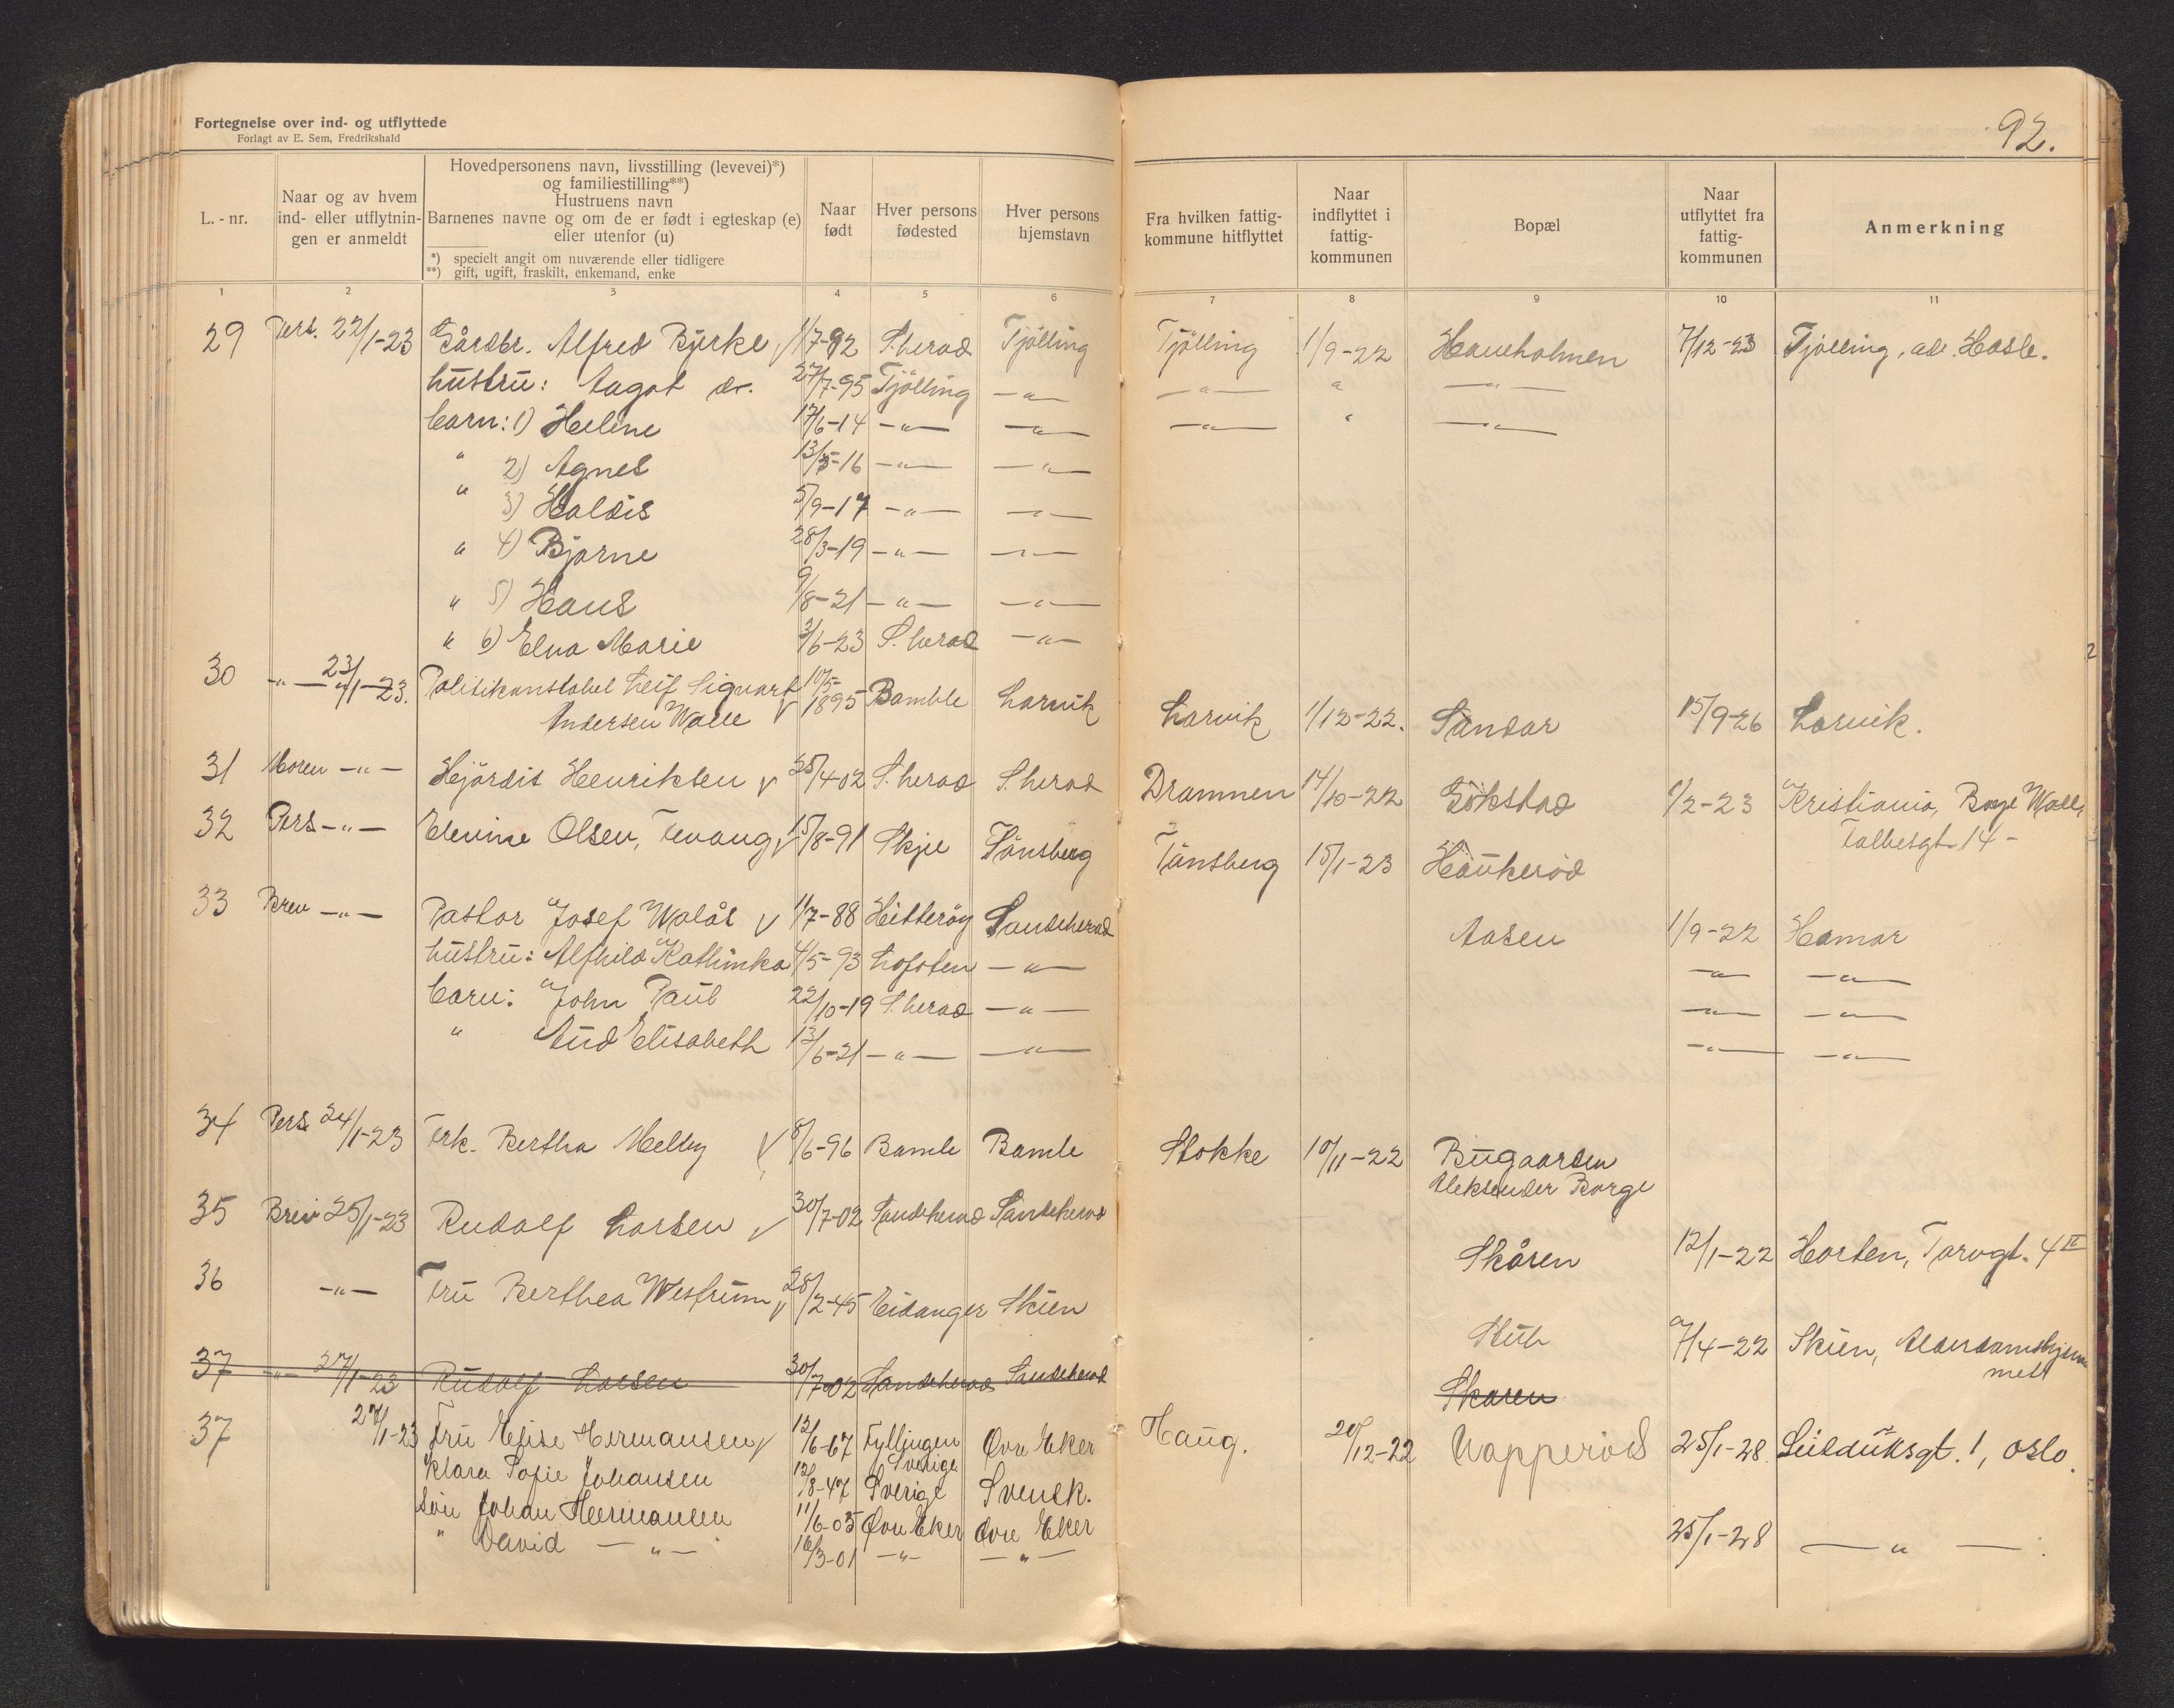 Fortegnelse over ind- og utflyttede
Forlagt av E. Sem, Fredrikshald
92.
L. - nr.
Naar og av hvem
ind- eller utflytnin-
gen er anmeldt
Hovedpersonens navn, livsstilling (levevei)*)
og familiestilling**)
Hustruens navn
Barnenes navne og om de er født i egteskap (e)
eller utenfor (u)
*) specielt angit om nuværende eller tidligere
**) gift, ugift, fraskilt, enkemand, enke
Naar
født
Hver persons
fødested
Hver persons
hjemstavn
Fra hvilken fattig-
kommune hitflyttet
Naar
indflyttet i
fattig-
kommunen
Bopæl
Naar
utflyttet fra
fattig-
kommunen
Anmerkning
1 2 3 4 5 6 7 8 9 10 11
29 Pers. 22/1-23 Gårdbr. Alfred Bjerke √ 1/7-92 S.herad Tjölling Tjölling 1/9-22 Haneholmen 7/12-23 Tjölling, adr. Hasle.
hustru: Aagot do. 27/7-95 Tjölling -"- -"- " -"-
barn: 1) Helene 17/6-14 -"- -"- -"- " -"-
" 2) Agnes 13/5-16 -"- -"-
" 3) Haldis 5/9-17 -"- -"-
" 4) Bjarne 28/3-19 -"- -"-
" 5) Hans 9/8-21 -"- -"-
" 6) Elna Marie 3/6-23 S.herad -"-
30 -"- 23/1-23. Politikonstabel Leif Sigvart 10/5- Bamble Larvik Larvik 1/12-22. Sandar 15/9-26 Larvik.
Andersen Walle √ 1895
31 Moren -"- Hjördis Henriksen √ 25/4-02 S.herad S.herad Drammen 14/10-22 Gökstad 1/2-23 Kristiania,
32 Pers -"- Elevine Olsen, √ 15/8-91 Skjee Tönsberg Tönsberg 15/1-23 Haukeröd
33 Brev -"- Pastor Josef Walås √ 1/7-88 Hitteröy Sandeherad Aasen 1/9-22 Hamar
hustru: Alfhild Kathinka 4/5-93 Lofoten -"- -"- -"-
barn: John Paul 22/10-19 S.herad -"- -"- -"-
" Aud Elisabeth 13/6-21 -"- -"- -"- -"-
34 Pers 24/1-23 Frk. Bertha Melby √ 8/6-96 Bamle Bamle Stokke 10/11-22 Bugaarden
Aleksander Borge
35 Brev 25/1-23 Rudolf Larsen √ 30/7-02 Sandeherad Sandeherad Skåren 12/1-22 Horten, Torvgt. 4 II
36 -"- Fru Berthea Westrum √ 28/2-45 Eidanger Skien Stub 7/4-22 Skien, Alderdomshjem-
met
37 -"- 27/1-23 Rudolf Larsen 30/7-02 Sandeherad Sandeherad Skaren
37 27/1-23 Fru Elise Hermansen √ 12/6-67 Fyllingen Øvre Eker Haug. 20/12-22 Napperöd 25/1-28. Seilduksgt. 1, Oslo.
Sverige
Klara Sofie Johansen 12/8-47 Sverige Svensk.
Sön Johan Hermansen 11/6-05 Øvre Eker Øvre Eker
" David -"- 16/3-01 -"- -"- 25/1-28 -"-